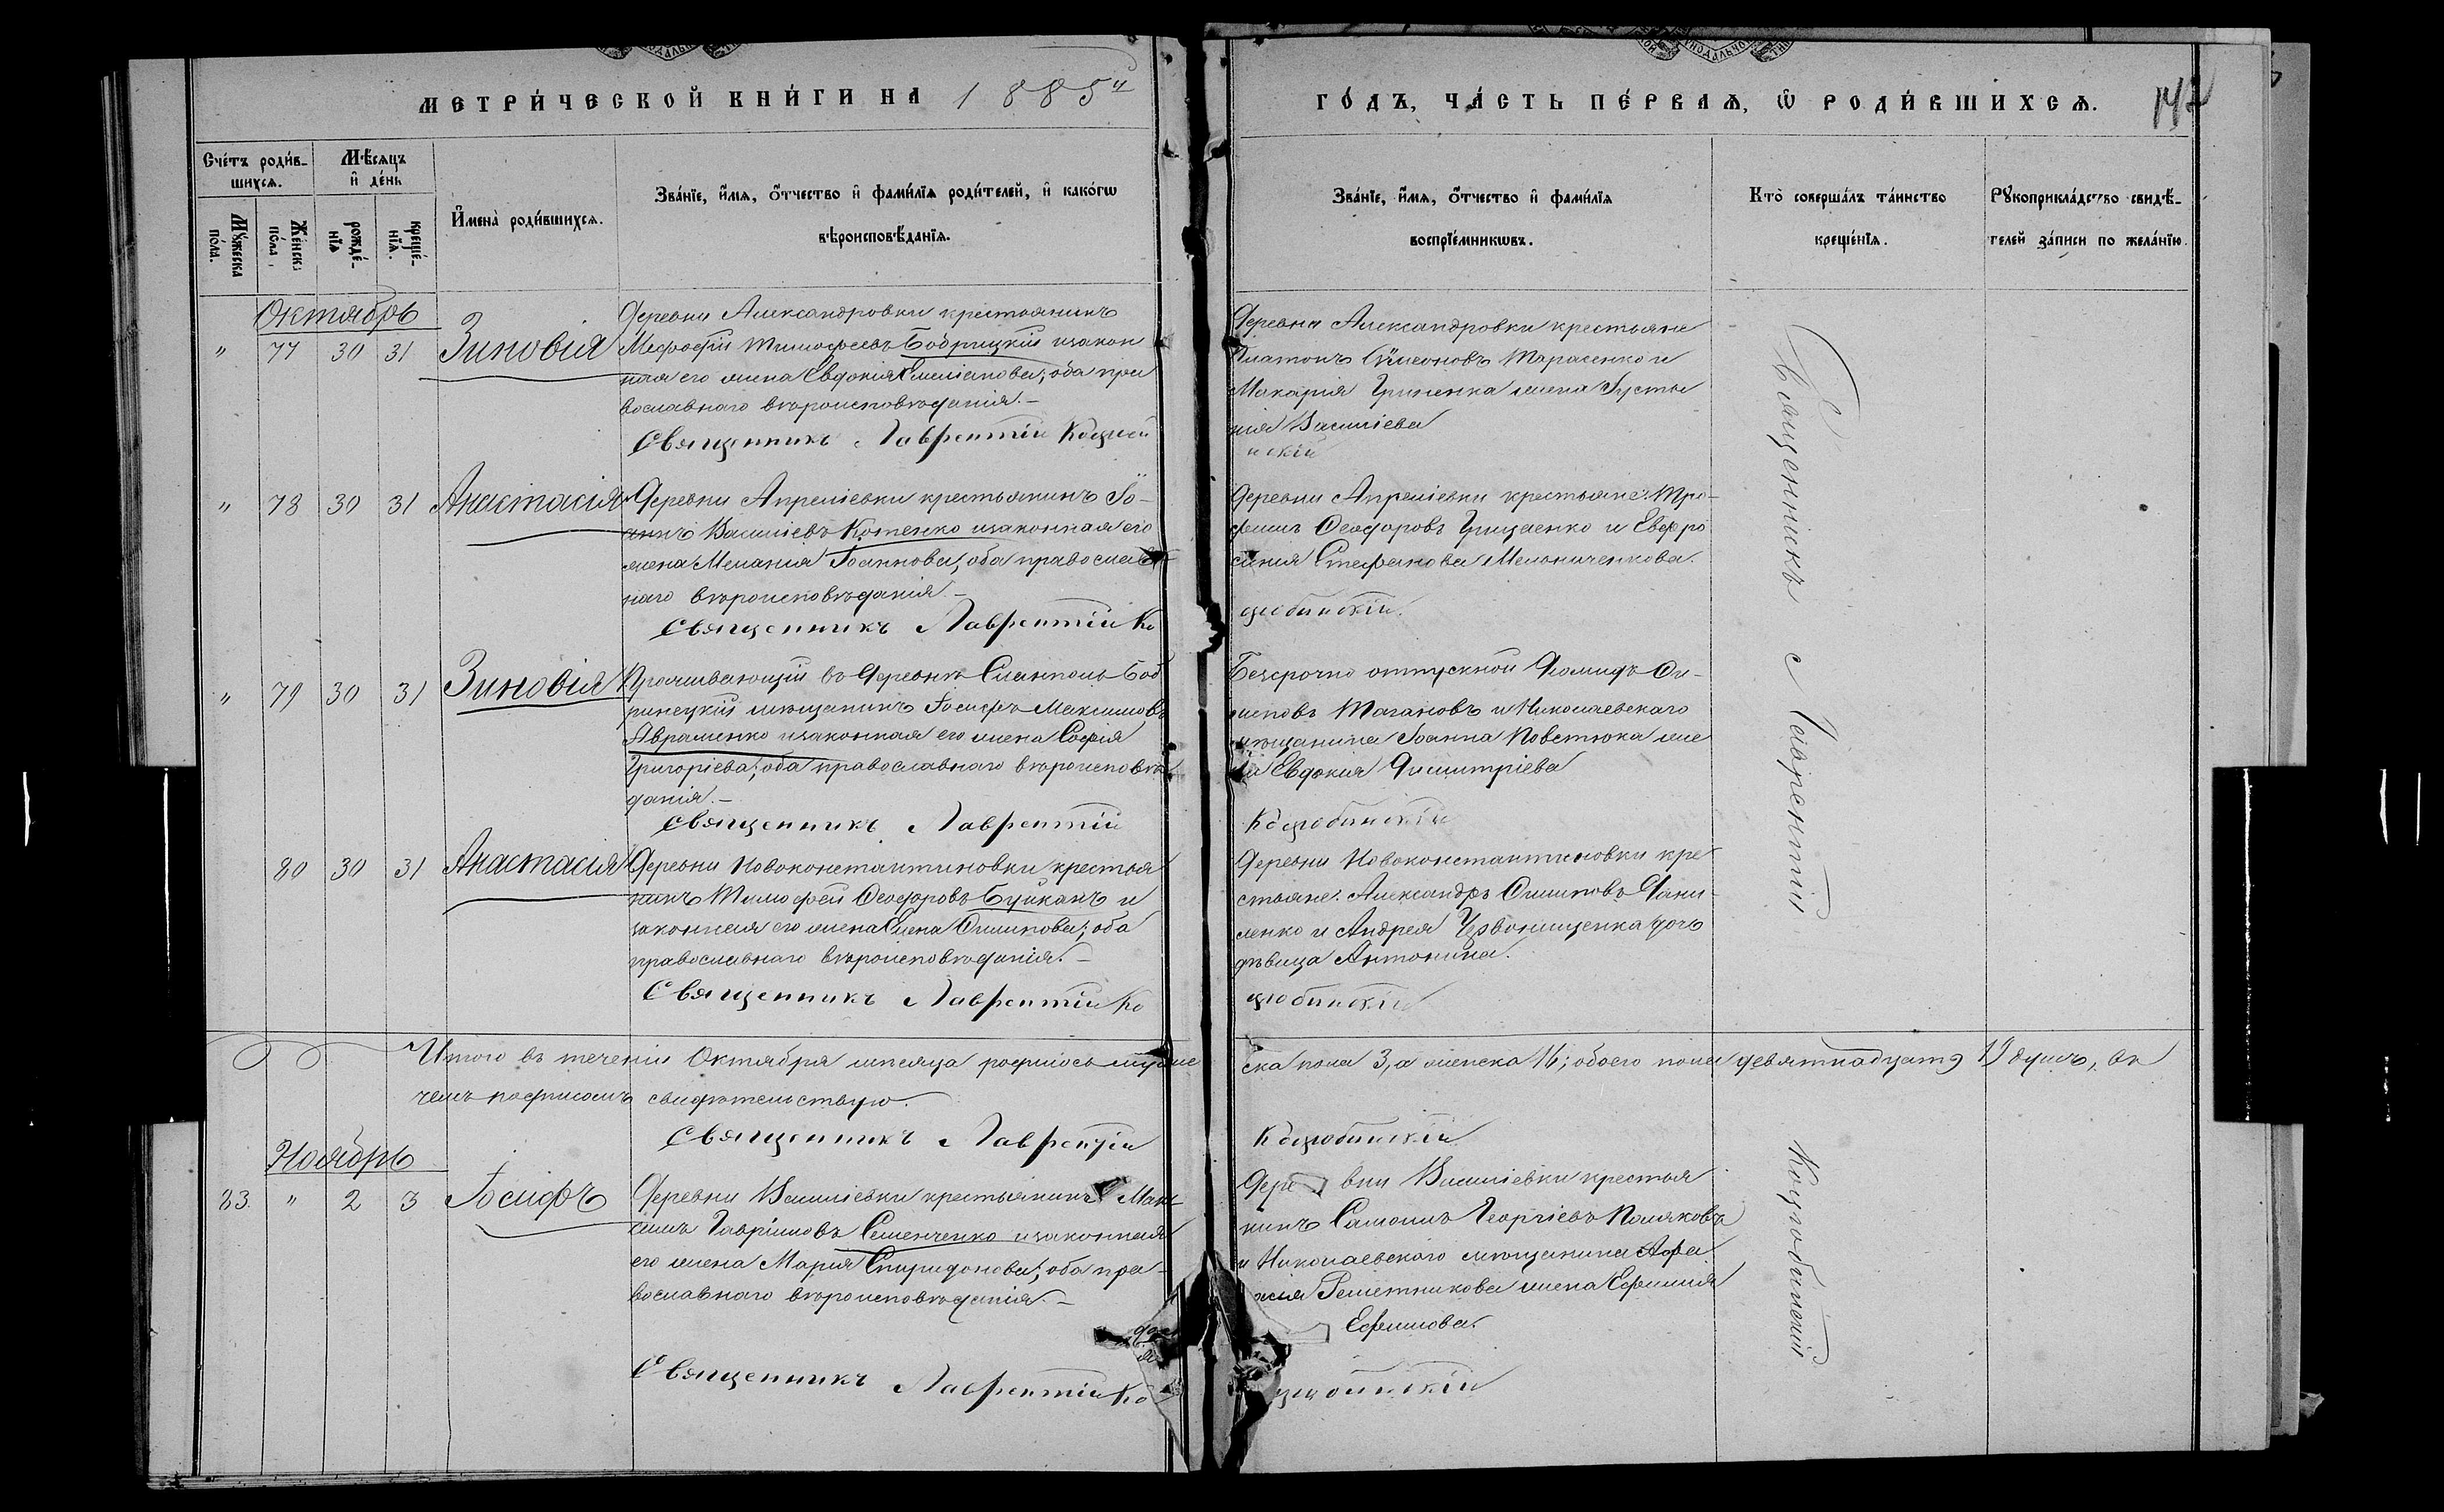 МЕТРИ́ЧЕСКОЙ КНИ́ГИ НА 1885й
ГО́ДЪ, ЧА́СТЬ ПЕ́РВАѦ, Ѡ҆ РОДИ́ВШИХСѦ.
Сче́тъ роди́в-
шихсѧ.
Мѣ́сѧцъ
и҆ де́нь
Мꙋ́жеска
по́ла.
Же́нска
по́ла.
рожде́-
нїѧ
креще́-
нїѧ.
И҆мена̀ роди́вшихсѧ.
Зва́нїе, и҆́мѧ, ѻ҆́тчество и҆ фами́лїѧ роди́телей, и҆ како́гѡ
вѣроисповѣ́данїѧ.
Зва́нїе, и҆́мѧ, ѻ҆́тчество и҆ фами́лїѧ
воспрїе́мникѡвъ.
Кто̀ соверша́лъ та́инство
креще́нїѧ.
Рꙋкоприкла́дство свидѣ́-
телей за́писи по жела́нїю.
Октябрь
" 77 30 31 Зиновія
Деревни Александровки крестьянинъ
Меѳодій Тимоѳеевъ Бобрицкій изакон
ная его жена Евдокия Емеліанова; оба пра
вославнаго вѣроисповѣданія.-
Священникъ Лаврентій Коцюби
Деревни Александровки крестьяне
Платонъ Сѵмеоновъ Тарасенко и
Макарія Гриненка жена Іусти
нія Василіева
нскій
" 78 30 31 Анастасія
Деревни Апреліевки крестьянинъ Іо-
аннъ Василіевъ Котенко изаконная его
жена Мелания Іоаннова; оба православ
наго вѣроисповѣданія.-
Священникъ Лаврентій Ко
Деревни Апреліевки крестьяне: Тро-
фимъ Ѳеодоровъ Грицаенко и Евфро
синия Стефанова Мельниченкова.
цюбинскій.
" 79 30 31 Зиновія
Проживающій въ деревнѣ Сланполь Боб
ринецкій мѣщанинъ Іосифъ Максимовъ
Авраменко изаконная его жена Софія
Григоріева; оба православнаго вѣроисповѣ
данія.-
Священникъ Лаврентій
Безсрочно отпускной Діомидъ Ѳи-
липовъ Тагановъ и Николаевскаго
мѣщанина Іоанна Повстюка же
на Евдокия Димитріева
Коцюбинскій
80 30 31 Анастасія
Деревни Новоконстантиновки крестья
нинъ Тимофей Ѳеодоровъ Буйканъ и
законная его жена Елена Филипова; оба
православнаго вѣроисповѣданія.-
Священникъ Лаврентій Ко
Деревни Новоконстантиновки кре
стьяне: Александръ Филиповъ Дани-
ленко и Андрея Червонищенка дочь
дѣвица Антонина.
цюбинскій
Священникъ Лаврентій Коцюбинскій
Итого въ теченіи Октября мѣсяца родилось муже
ска пола 3, а женска 16; обоего пола девятнадцать 19 душъ, въ
чемъ подписомъ свидѣтельствую.
Священникъ Лаврентій
Коцюбинскій
Ноябрь
23. " 2 3 Іосифъ
Деревни Василіевки крестьянинъ Мак
симъ Гавріиловъ Семенченко изаконная
его жена Мария Спиридонова; оба пра-
вославнаго вѣроисповѣданія.-
Священникъ Лаврентій Ко
Дере вни Василіевки крестья
нинъ Самоилъ Георгіевъ Поляковъ
и Николаевского мѣщанина Аѳа
асія Решетникова жена Ефимия
Ефимова.
цюбинскій